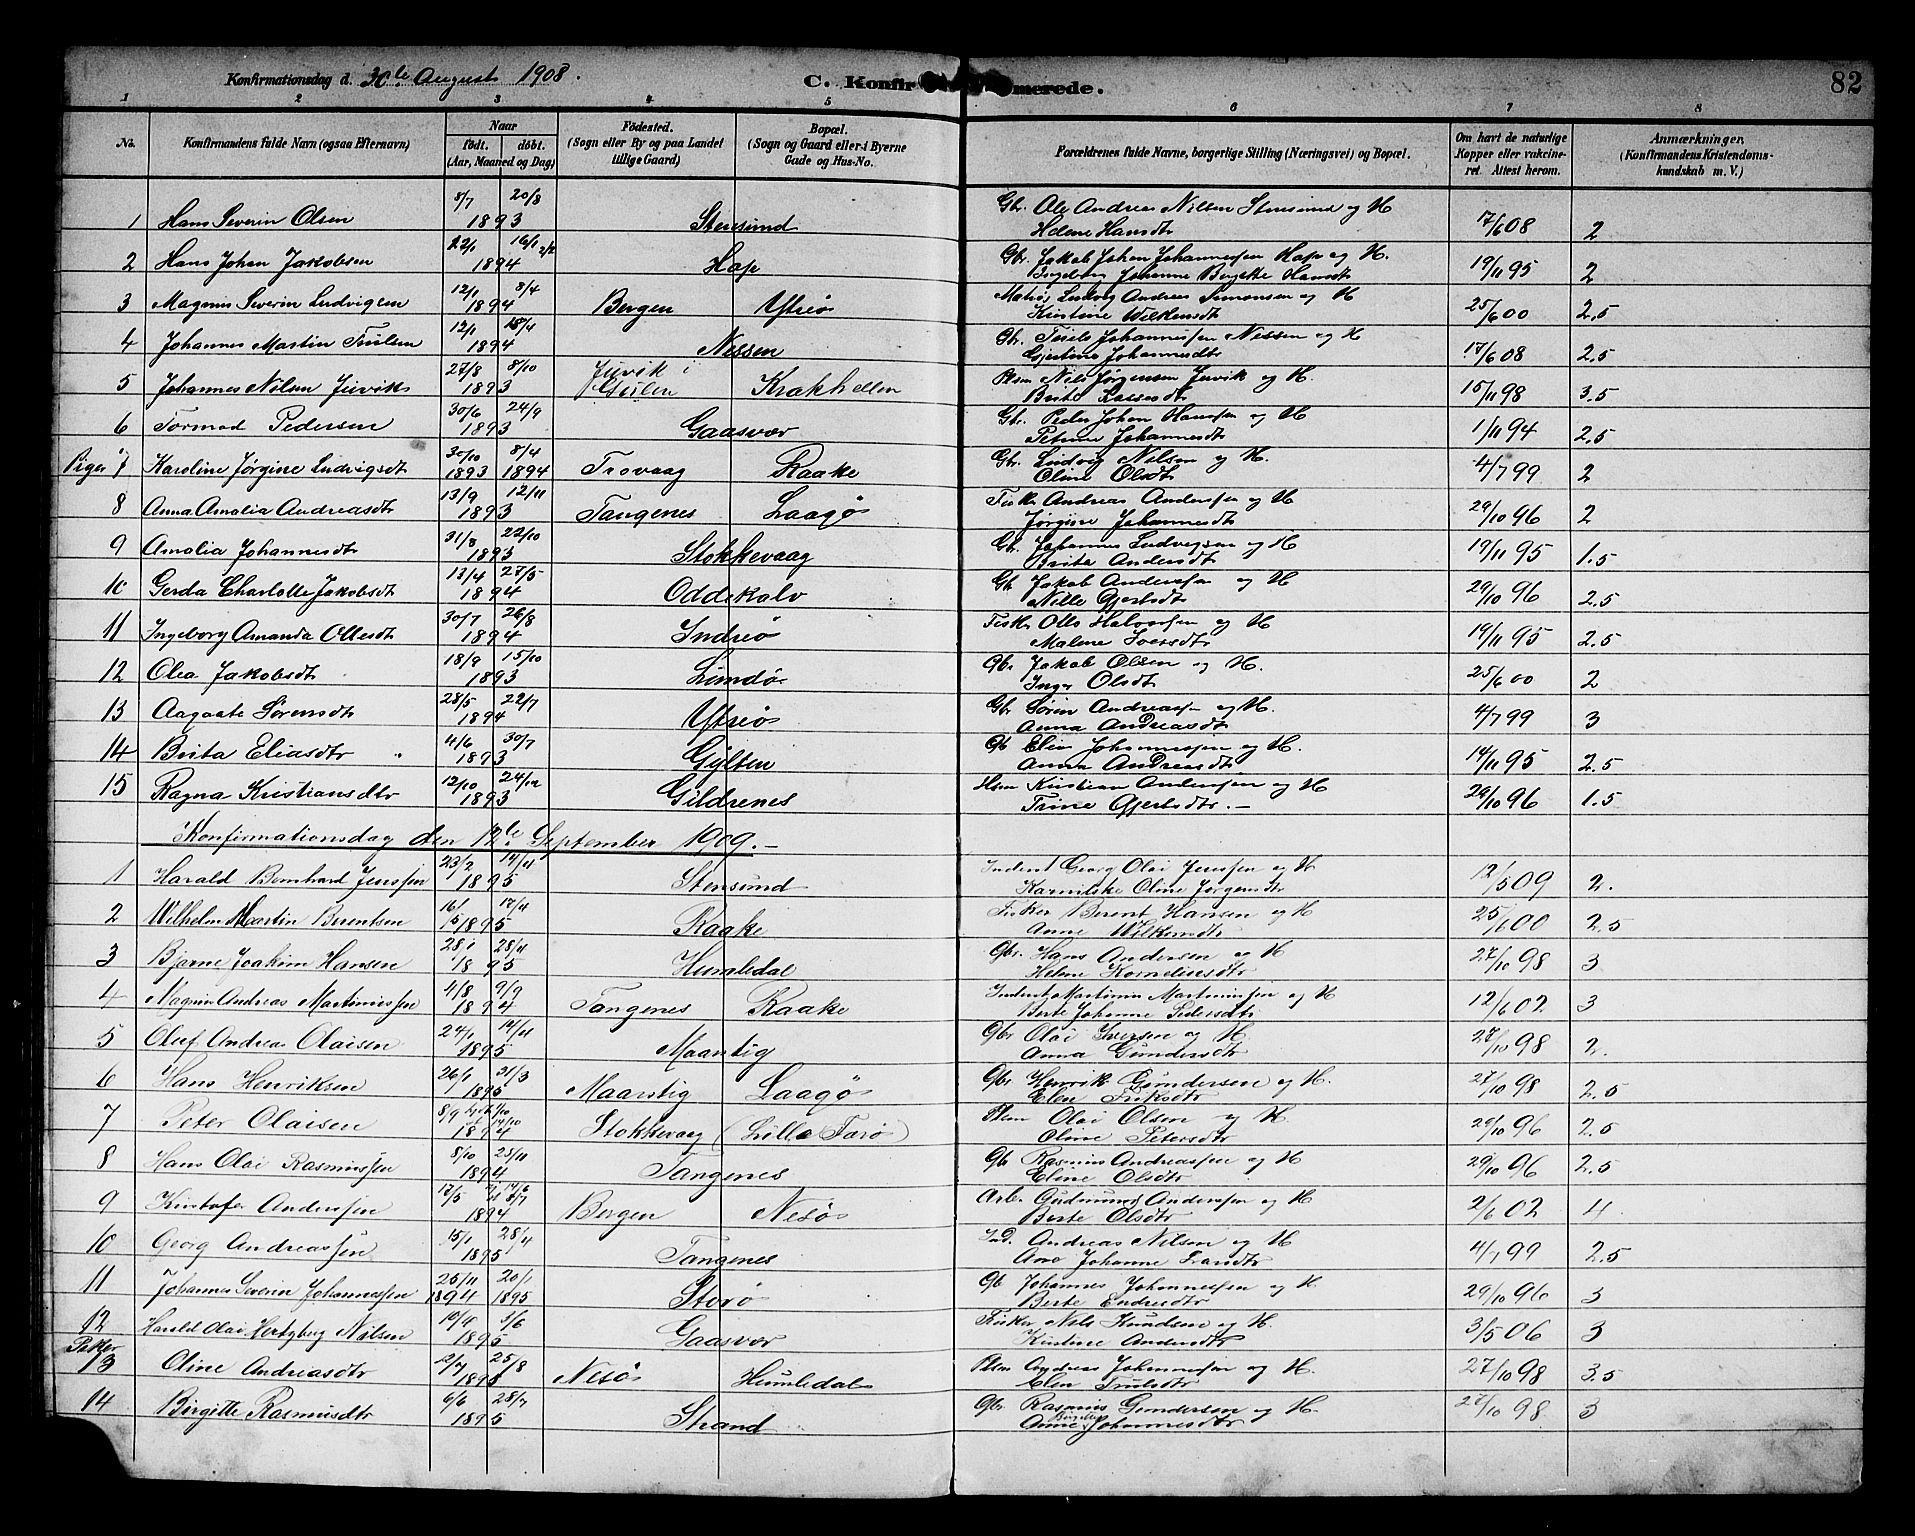 Konfirmationsdag d. 30te August 1908.
C. Konfirmerede.
82
1 2 3 4 5 6 7 8
No. Konfirmandens fulde Navn (ogsaa Efternavn) Naar født. døbt. (Aar, Maaned og Dag) Fødested. (Sogn eller By og paa Landet tillige Gaard) Bopæl. (Sogn og Gaard eller i Byerne Gade og Hus-No. Forældrenes fulde Navne, borgerlige Stilling (Næringsvei) og Bopæl. Om havt de naturlige Kopper eller vakcineret. Attest herom. Anmærkninger, (Konfirmandens Kristendomskundskab m. V.)
1 Hans Severin Olsen 8/7 20/8 1893 Stensund Gbr. Ole Andreas Nilsen Stensund og H Helene Hansdt 17/6 08 2
2 Hans Johan Jakobsen 22/1 16/1 1894 Hop Gbr. Jakob Johan Johannessen Hop og H. Ingeborg Johanne Hansdt 19/11 95 2
3 Magnus Severin Ludvigsen 12/1 8/4 1894 Bergen Ytreø Ludvig Andreas Simonsen og H Kristine Wilkensdt 25/6 00 2.5
4 Johannes Martin Trulsen 12/1 1894 Nessen Gbr. Johannessen Nessen og H Gjertine Johannesdtr 17/6 08 2.5
5 Johannes Nilsen Juvik 27/8 8/10 1893 Juvik i Gulen Krakhellen Plsm Nils Jørgensen Juvik og H. Brite 15/11 98 3.5
6 Tormod Pedersen 30/6 24/9 1893 Gaasvær Gbr. Peder Johan Hansen og H Petrine Johannesdt 1/11 94 2.5
Piger 7 Karoline Jørgine Ludvigsdt 30/10 8/4 1893 1894 Trovaag Raake Gbr. Ludvig Nilsen og H. Oline Olsdt 4/7 99 2
8 Anna Amalia Andreasdtr 13/9 12/11 1893 Tangenes Laagø Fisk. Andreas Andersen og H Jørgine Johannesdtr 29/10 96 2
9 Amalia Johannesdtr 31/8 22/10 1893 Stokkevaag Gbr. Johannes Ludvigsen og H Brita Andersdt 19/11 95 1.5
10 Gerda Charlotte Jakobsdt 13/4 27/5 1894 Oddekalv Gb Jakob Andersen og H Nille Gjertsdt 29/10 96 2.5
11 Ingeborg Amanda Ottesdt 30/7 26/8 1894 Indreø Fisk. Otto Halvorsen og H Malene Iversdt 19/11 95 2.5
12 Olea Jakobsdt 18/9 15/10 1893 Lundø Gbr Jakob Olsen og H. Inger Olsdt 25/6 00 2
13 Aagaate Sørensdt 28/5 22/7 1894 Ytreø Gbr Søren Andreassen og H. Anna Andreasdt 4/7 99 3
14 Brita Eliasdtr 4/6 30/7 1893 Gylten Gb Elias Johannessen og H. Anna Andreasdt 14/11 95 2.5
15 Ragna Kristiansdtr 12/10 24/12 1893 Gildrenes Hsm Kristian Andersen og H Trine Gjertsdtr. - 29/10 96 1.5
Konfirmationsdag den 12te September 1909. -
1 Harald Bernhard Jenssen 23/2 14/4 1895 Stensund Inderst Georg Olai Jenssen og H Oline Jørgensdtr 12/5 09 2.
2 Wilhelm Martin Berentsen 17/4 1895 Raake Fisker Berent Hansen og H Anne Wilkensdtr 25/6 00 2.5
3 Bjarne Joakim Hansen 28/1 28/4 1895 Humledal Gbr. Hans Andersen og H Helene Korneliusdtr 27/10 98 3
4 Magnus Andreas Martinussen 4/8 9/9 1894 Tangenes Raake Inderst Martinus Martinussen og H Berte Johanne Pedersdtr 12/6 02 3
5 Oluf Andreas Olaisen 24/1 14/4 1895 Maanstig Gbr Olai Iversen og H Anna Gundersdtr 27/10 98 2.
6 Hans Henriksen 26/1 31/3 1895 Maanstig Laagø Gbr Henrik Gundersen og H. Elen Eriksdtr 27/10 98 2.5
7 Peter Olaisen 8/9 1894 Stokkevaag (Lille Færø) Plsm Olai Olsen og H Oline Petersdtr 29/10 96 2.5
8 Hans Olai Rasmussen 8/10 23/11 1894 Tangenes Gb Rasmus Andreassen og H Eline Olsdtr 29/10 96 2.5
9 Kristofer Anderssen 17/5 1894 Bergen Nesø Arb. Gudmund Anderssen og H Berte Olsdtr 2/6 02 4
10 Georg Andreassen 15/1 28/4 1895 Tangenes Ind. Andreas Nilsen og H Ane Johanne 4/7 99 2.5
11 Johannes Severin Johannessen 25/11 20/1 1894 1895 Storø Gb Johannes Johannessen og H Berte Endresdtr 29/10 96 3
12 Harald Olai Hertzberg Nilsen 19/4 3/6 1895 Gaasvær Fisker Nils Knudsen og H. Kristine Andersdtr 3/5 06 3
Piker 13 Oline Andreasdtr 2/7 25/8 1895 Nesø Humledal Plsm Andreas Johannessen og H. Elen Trulsdtr 27/10 98 3.5
14 Birgitte Rasmusdtr 6/6 28/7 1895 Strand Gbr. Rasmus Gundersen og H. Anne Birgitte Johannesdtr 27/10 98 3